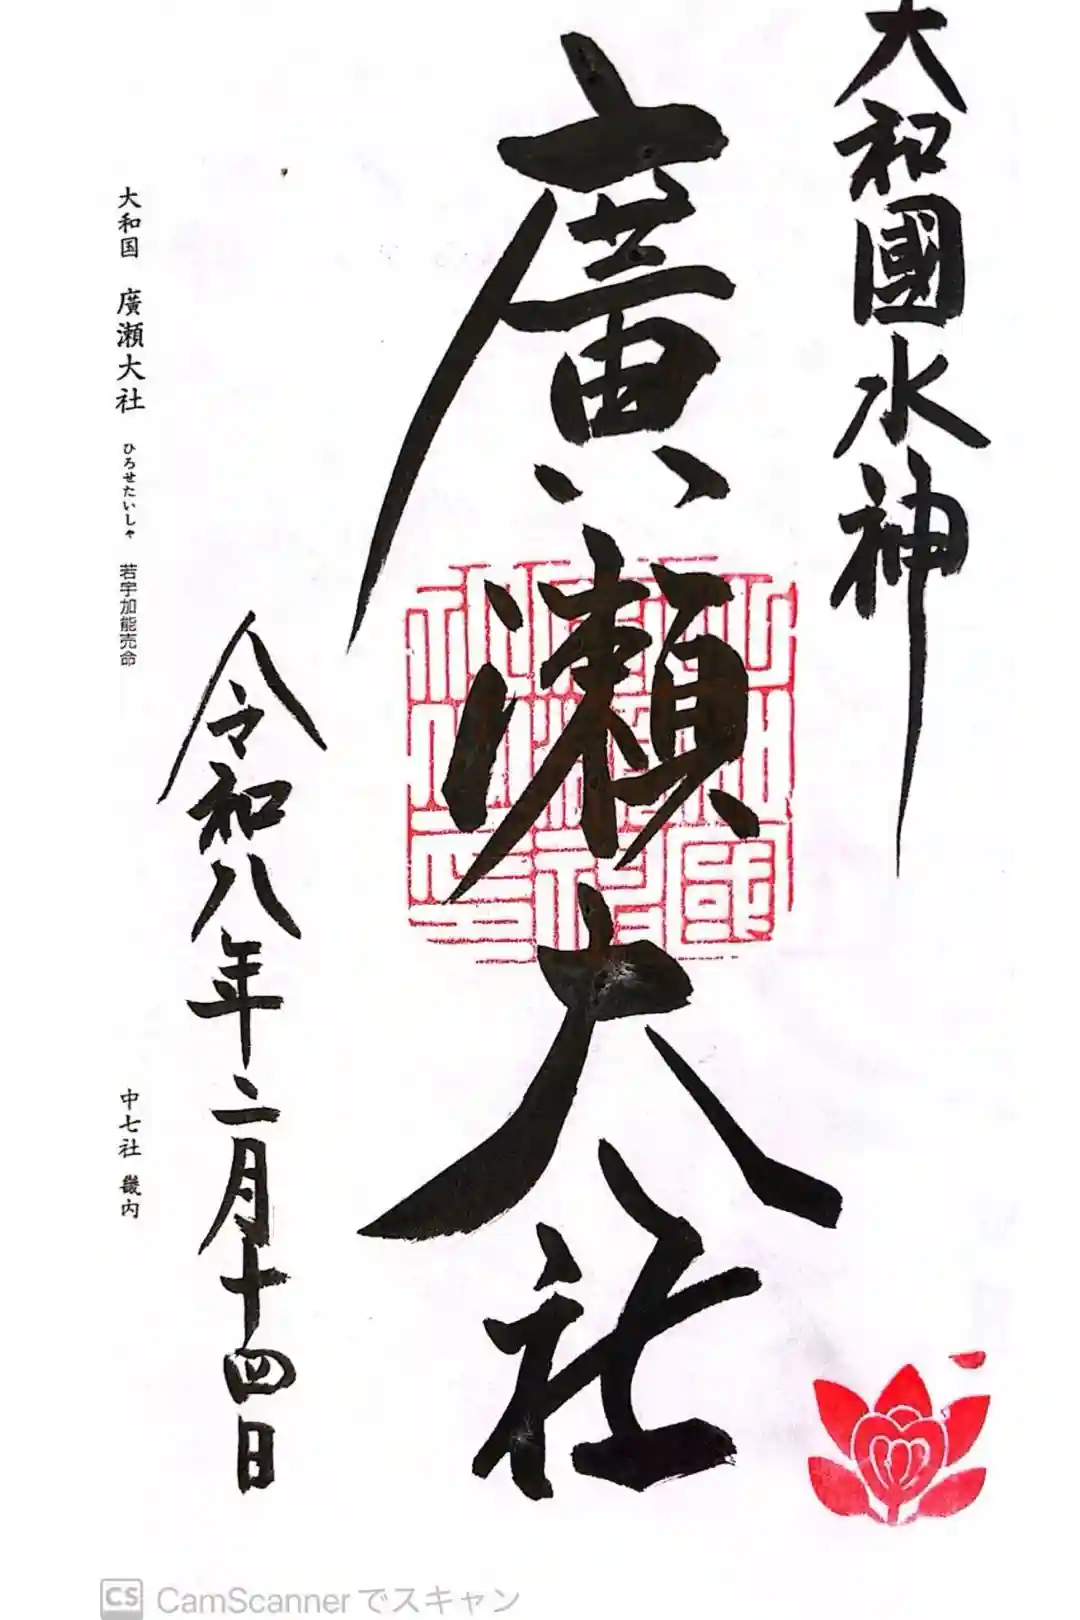 大和國水神
廣瀬大社
令和八年二月十四日
大和国 廣瀬大社 ひろせたいしゃ 若宇加能売命
中七社 畿内
CS CamScannerでスキャン